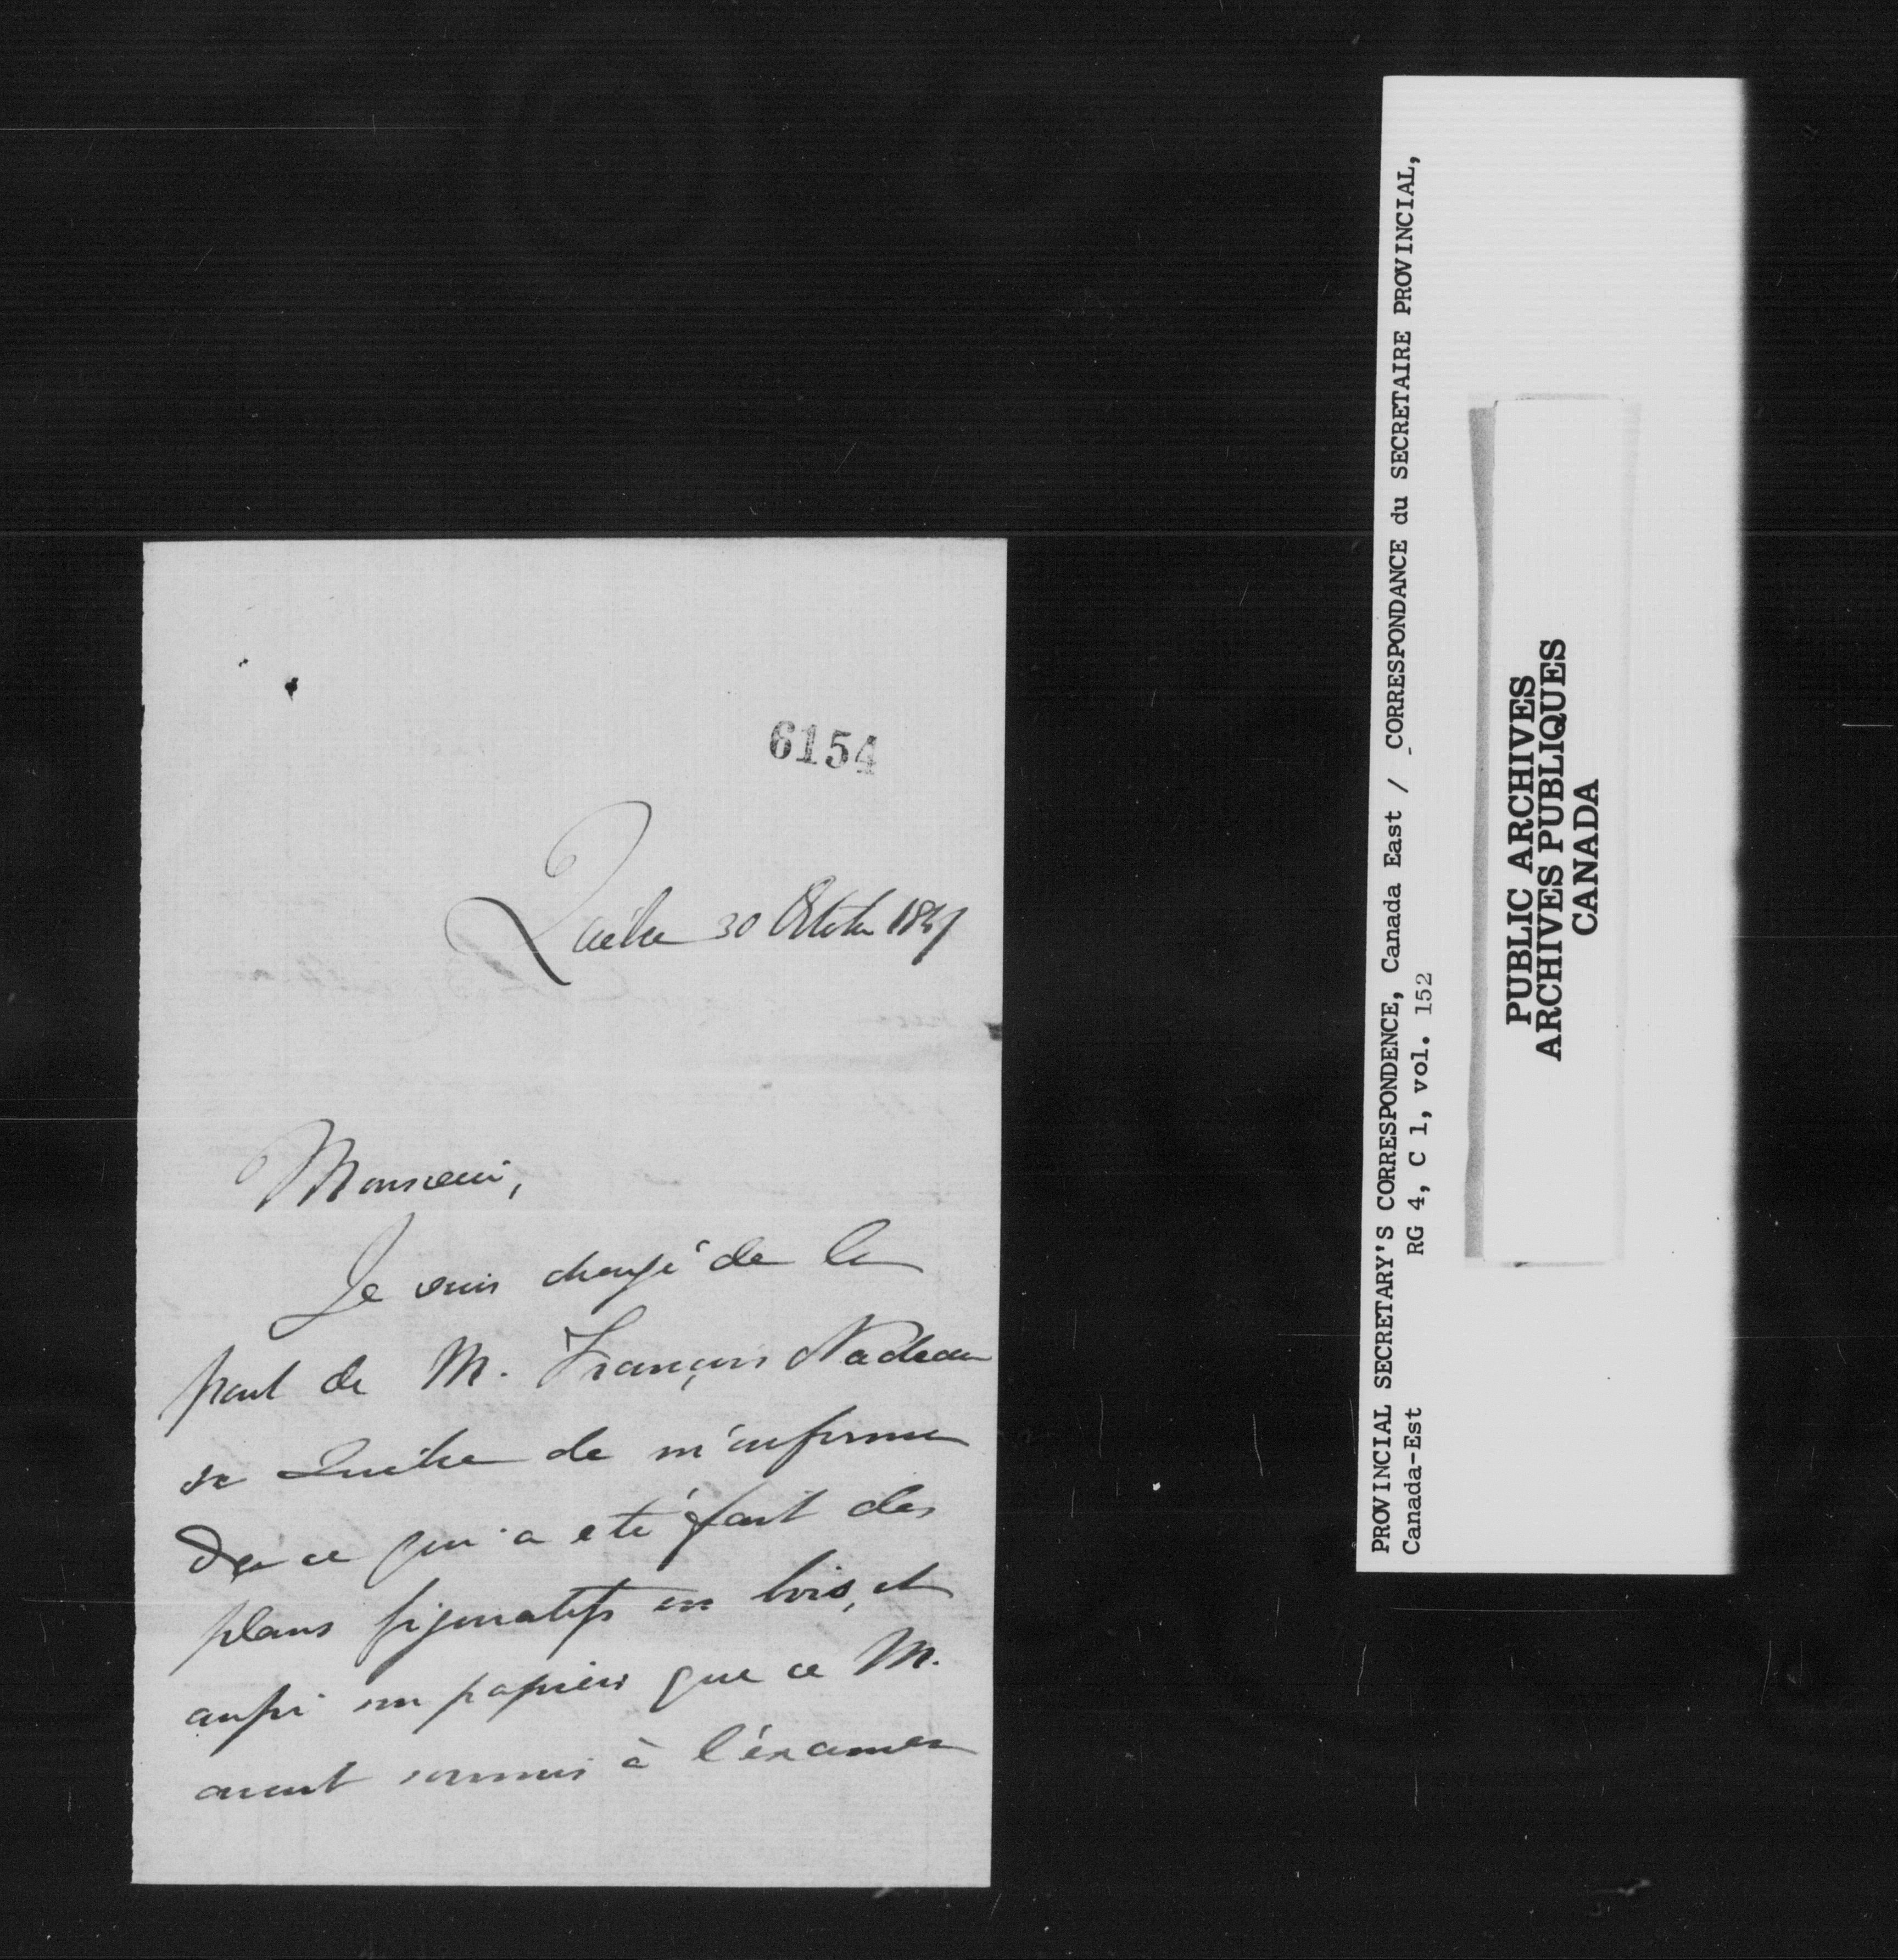 6154
Québec 30 Octobre 1847
Monsieur,
Je suis chargé de la
part de M. François Nadeau
de Québec de m'informer
de ce qui a été fait des
plans figuratifs en bois, et
aussi en papier que ce M.
avait soumis à l'éxamen
PROVINCIAL SECRETARY'S CORRESPONDENCE, Canada East / CORRESPONDANCE du SECRETAIRE PROVINCIAL,
Canada-Est RG 4, C 1, vol. 152
PUBLIC ARCHIVES
ARCHIVES PUBLIQUES
CANADA